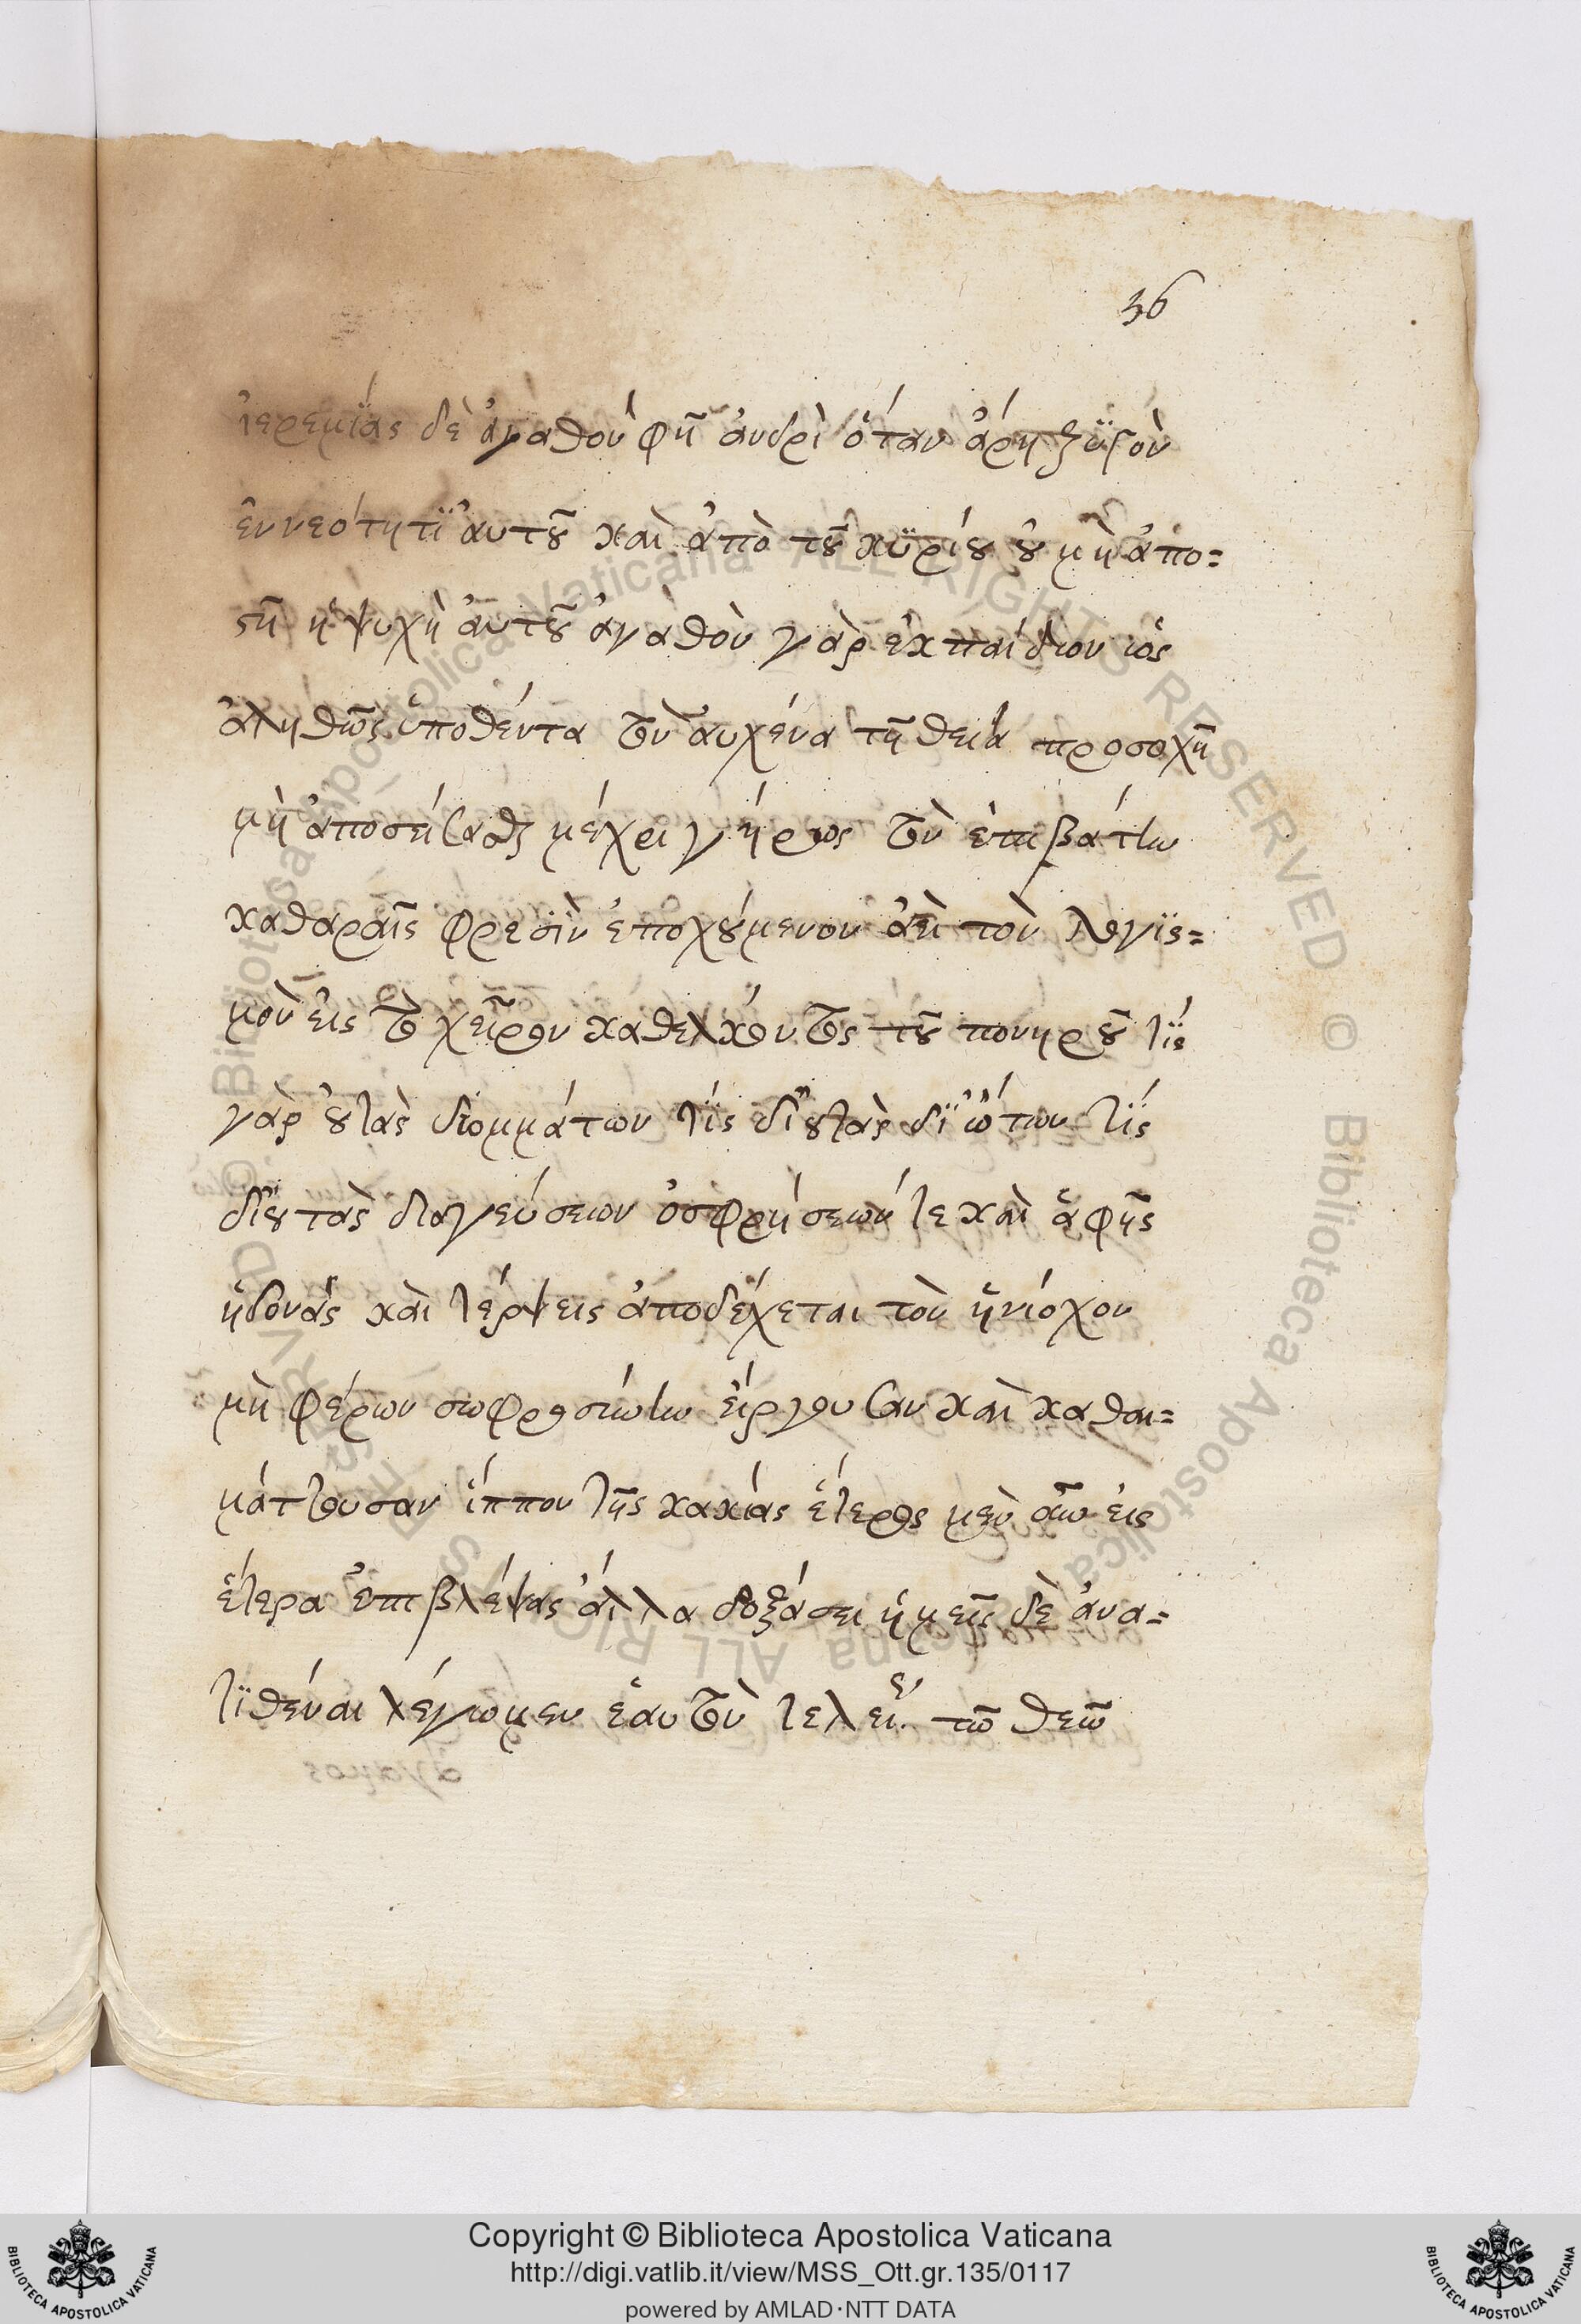 36
ἱερεμΐας δὲ ἀγαθὸν φῆ ἀνδρὶ ὅταν ἄρη ζϋγὸν
ἐν νεότητϊ ἀυτοῦ καὶ ἀπὸ τοῦ κϋρίου οὐ μὴ ἀπο=
στῆ ἡ ψυχὴ ἀυτοῦ ἀγαθὸν γὰρ ἐκ παίδων ὡς
ἀληθῶς ὑποθέντα τὸν ἀυχένα τῆ θεία προσοχῆ
μὴ ἀποσείσασθαι μέχρι γήρως τὸν ἐπιβάτην
καθαραῖς φρεσῒν ἐποχούμενον ἀεὶ τὸν λογϊς=
μὸν εἰς τὸ χεῖρον καθελκόντος τοῦ πονηροῦ τΐς
γὰρ οὐ τὰς δι ομμάτων τΐς δϊ οὐ τὰς δϊ ὤτων τΐς
δϊ οὐ τὰς διαγεύσεων ὀσφρήσεων τε καὶ ἁφῆς
ἡδονὰς καὶ τέρψεις ἀποδέχεται τὸν ἡνίοχον
μὴ φέρων σωφροσύνην εἴργουσαν καὶ καθαι=
μάττουσαν ἵππον τῆς κακίας ἕτερος μὲν οὖν εἰς
ἕτερα ἐπιβλέψας ἄλλα δοξάσει ἡμεῖς δὲ ἀνα=
τϊθέναι λέγωμεν ἑαυτὸν τελεί. τῶ θεῶ
Copyright © Biblioteca Apostolica Vaticana
http://digi.vatlib.it/view/MSS_Ott.gr.135/0117
powered by AMLAD·NTT DATA
BIBLIOTECA APOSTOLICA VATICANA
BIBLIOTECA APOSTOLICA VATICANA